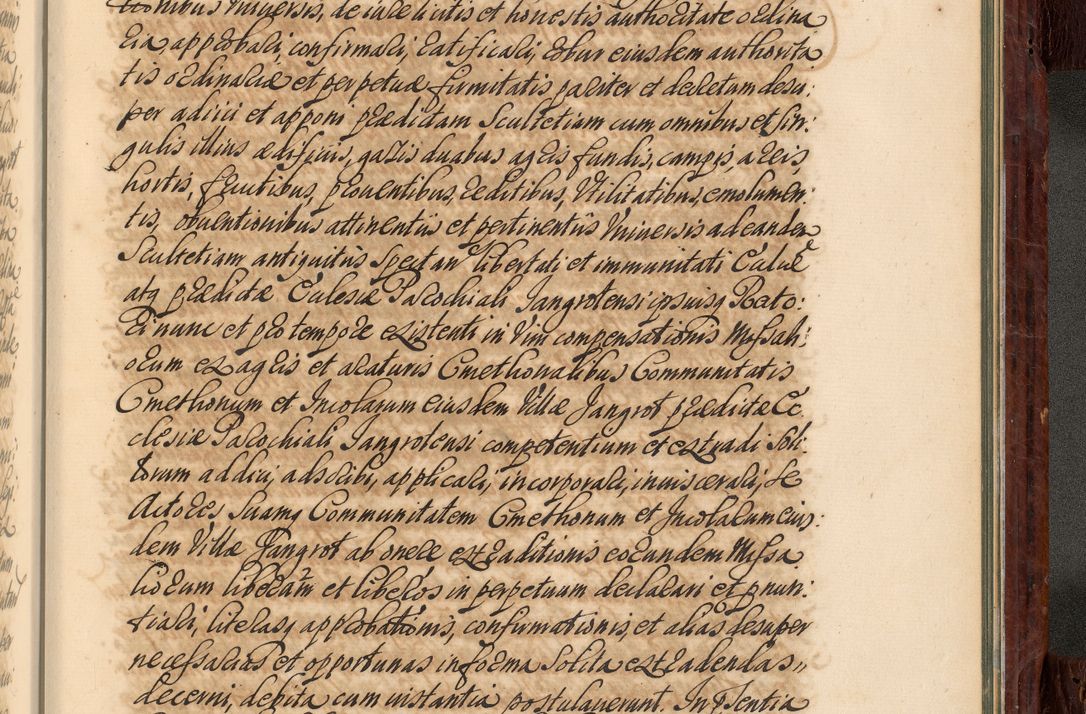 tionibus Universis, de iure licitis et honestis authoritate ordina
ria approbari, confirmari, ratificari, robur eiusdem authorita
tis ordinariæ et perpetuæ firmitatis pariter et decretum desu:
per adiici et apponi prædictam Scultetiam cum omnibus et sin:
gulis illius ædificiis, garis duabus agris fundis, campis, areis,
hortis, fructibus, proventibus, reditibus, Utilitatibus, emolumen:
tis, obventionibus attinentiis et pertinentiis Universis ad eandem
Scultetiam antiquitùs spectan libertati et immunitati Ecclæ
atq prædictæ Ecclesiæ Parochiali Jangrotensi ipsiusq Recto:
ri nunc et pro tempore existenti in Vim compensationis Missali:
orum ex agris et araturis Cmethonalibus Communitatis
Cmethonum et Incolarum eiusdem Villæ Jangrot prædictæ Ec
clesiæ Parochiali Jangrotensi competentium et extradi soli:
torum addici, adscribi, applicari, incorporari, inviscerari, se
Actores suamq Communitatem Cmethonum et Incolarum eius:
dem Villæ Jangrot ab onere extraditionis eorundem Missa
liorum liberam et liberos in perpetuum declarari et pnun:
tiari, literasq approbationis, confirmationis, et alias desuper
necessarias et opportunas in forma solita extradendas
decerni, debita cum instantia postulaverunt. In pSentia